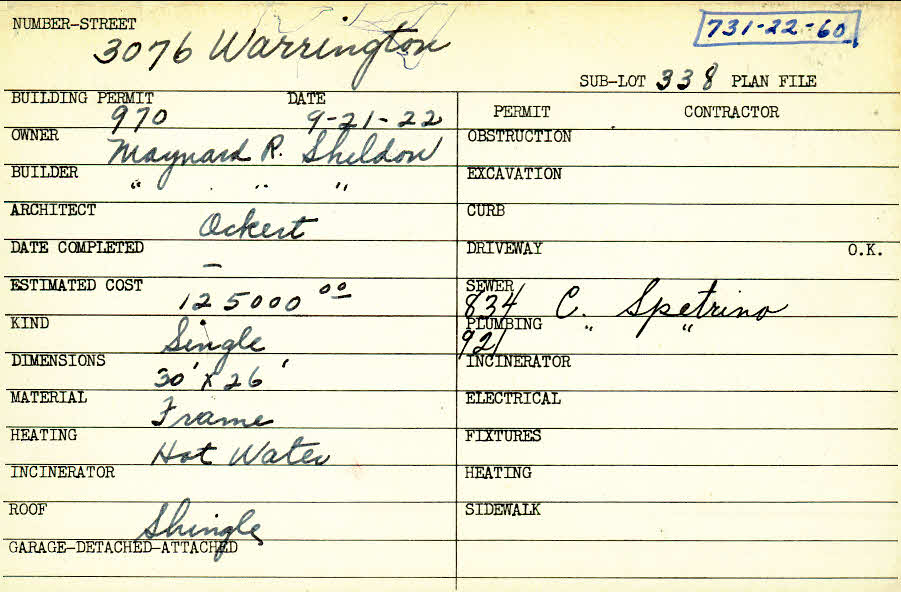 NUMBER-STREET
3076 Warrington
731-22-60
SUB-LOT 338 PLAN FILE
BUILDING PERMIT DATE
970 9-21-22
OWNER
Maynard R. Sheldon
BUILDER
" " "
ARCHITECT
Ockert
DATE COMPLETED
–
ESTIMATED COST
125000 00
KIND
Single
DIMENSIONS
30' x 26'
MATERIAL
Frame
HEATING
Hot Water
INCINERATOR
ROOF
Shingle
GARAGE-DETACHED-ATTACHED
PERMIT CONTRACTOR
OBSTRUCTION
EXCAVATION
CURB
DRIVEWAY O.K.
SEWER
834 C. Spetrino
PLUMBING " "
921
INCINERATOR
ELECTRICAL
FIXTURES
HEATING
SIDEWALK